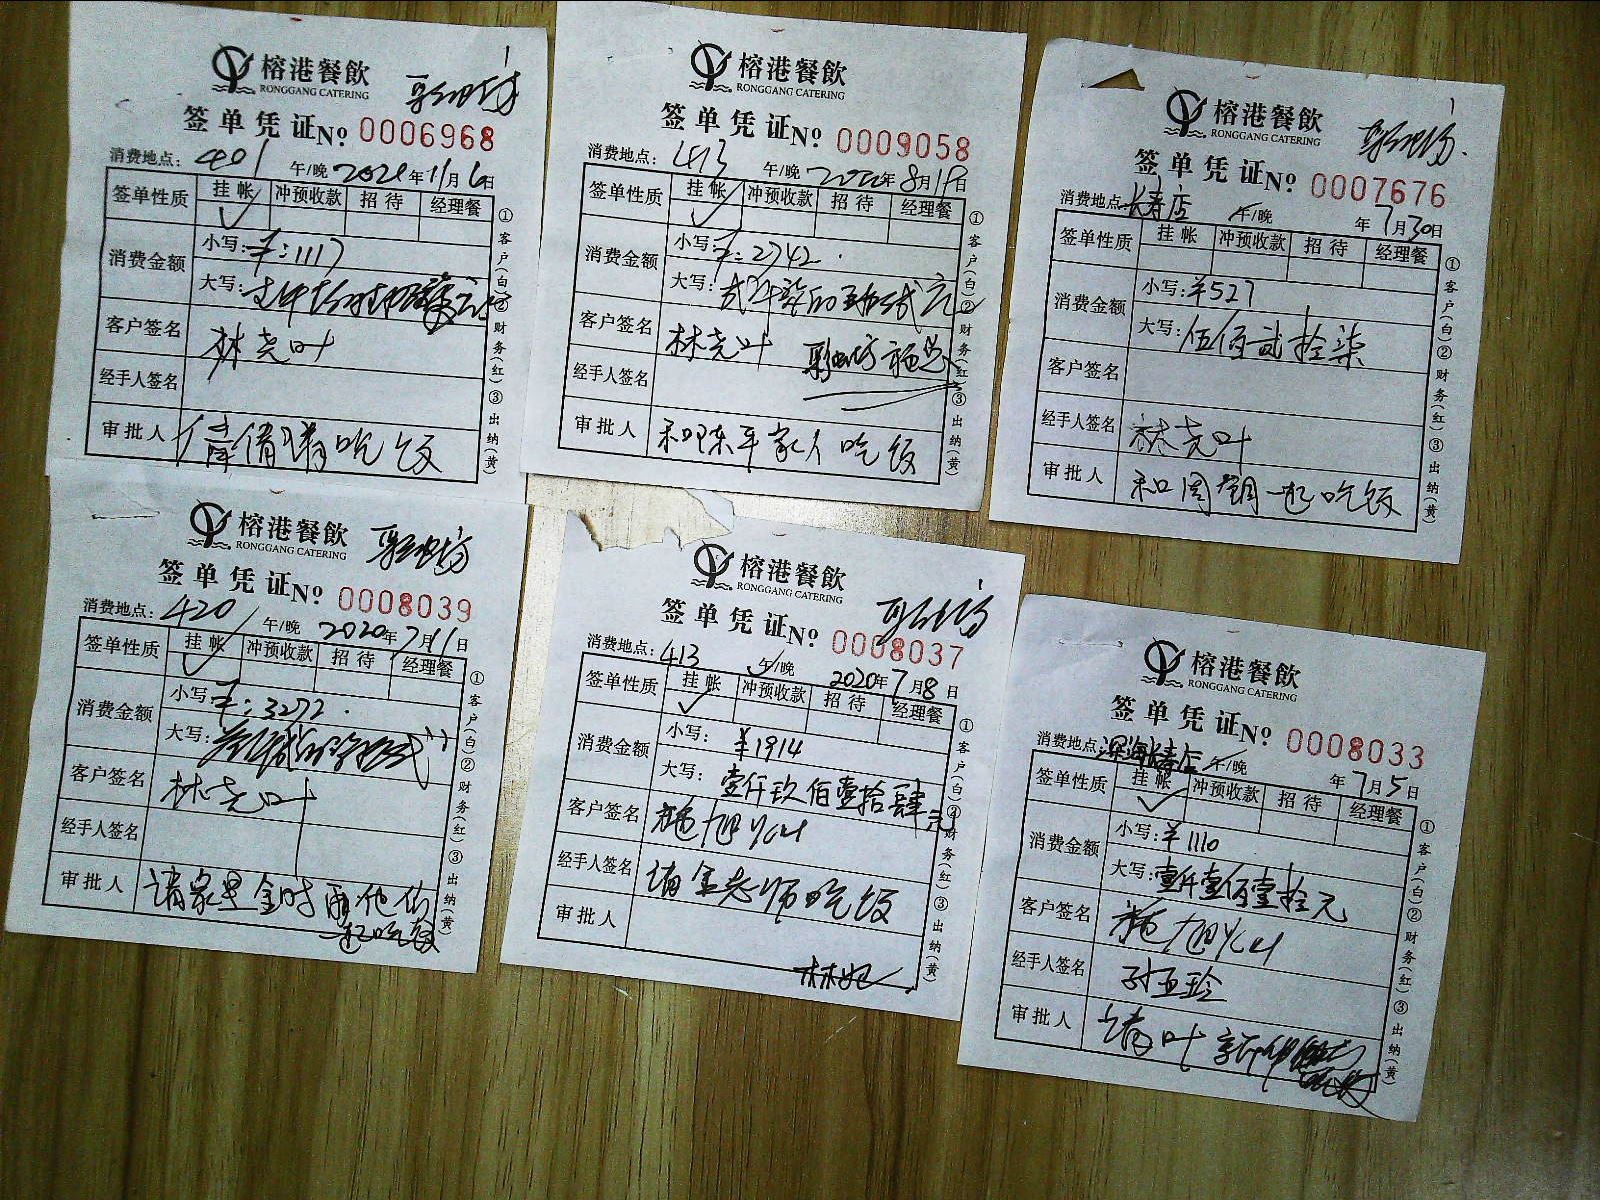 榕港餐飲
RONGGANG CATERING
签单凭证 No 0006968
消费地点：401 午/晚 2021年11月6日
签单性质 挂帐 冲预收款 招待 经理餐
消费金额 小写：¥：1117
大写：
客户签名 林尧叶
经手人签名
审批人 请吃饭
①客户(白)②财务(红)③出纳(黄)
榕港餐飲
RONGGANG CATERING
签单凭证 No 0009058
消费地点：413 午/晚 年8月19日
签单性质 挂帐 冲预收款 招待 经理餐
消费金额 小写：¥：2742.
大写：贰仟柒佰肆拾贰元
客户签名 林尧叶
经手人签名
审批人 和陈平家人吃饭
①客户(白)②财务(红)③出纳(黄)
榕港餐飲
RONGGANG CATERING
签单凭证 No 0007676
消费地点：长寿店 午/晚 年7月30日
签单性质 挂帐 冲预收款 招待 经理餐
消费金额 小写：¥527
大写：伍佰贰拾柒
客户签名
经手人签名 林尧叶
审批人 和周钢一起吃饭
①客户(白)②财务(红)③出纳(黄)
榕港餐飲
RONGGANG CATERING
签单凭证 No 0008039
消费地点：420 午/晚 2020年7月11日
签单性质 挂帐 冲预收款 招待 经理餐
消费金额 小写：¥：3272.
大写：
客户签名 林尧叶
经手人签名
审批人 请家
一起吃饭
①客户(白)②财务(红)③出纳(黄)
榕港餐飲
RONGGANG CATERING
签单凭证 No 0008037
消费地点：413 午/晚 2020年7月8日
签单性质 挂帐 冲预收款 招待 经理餐
消费金额 小写：¥1914
大写：壹仟玖佰壹拾肆元
客户签名 施旭
经手人签名 请金老师吃饭
审批人
①客户(白)②财务(红)③出纳(黄)
榕港餐飲
RONGGANG CATERING
签单凭证 No 0008033
消费地点：深海长寿店 午/晚 年7月5日
签单性质 挂帐 冲预收款 招待 经理餐
消费金额 小写：¥1110
大写：壹仟壹佰壹拾元
客户签名 施旭
经手人签名 孙亚玲
审批人 请叶
①客户(白)②财务(红)③出纳(黄)